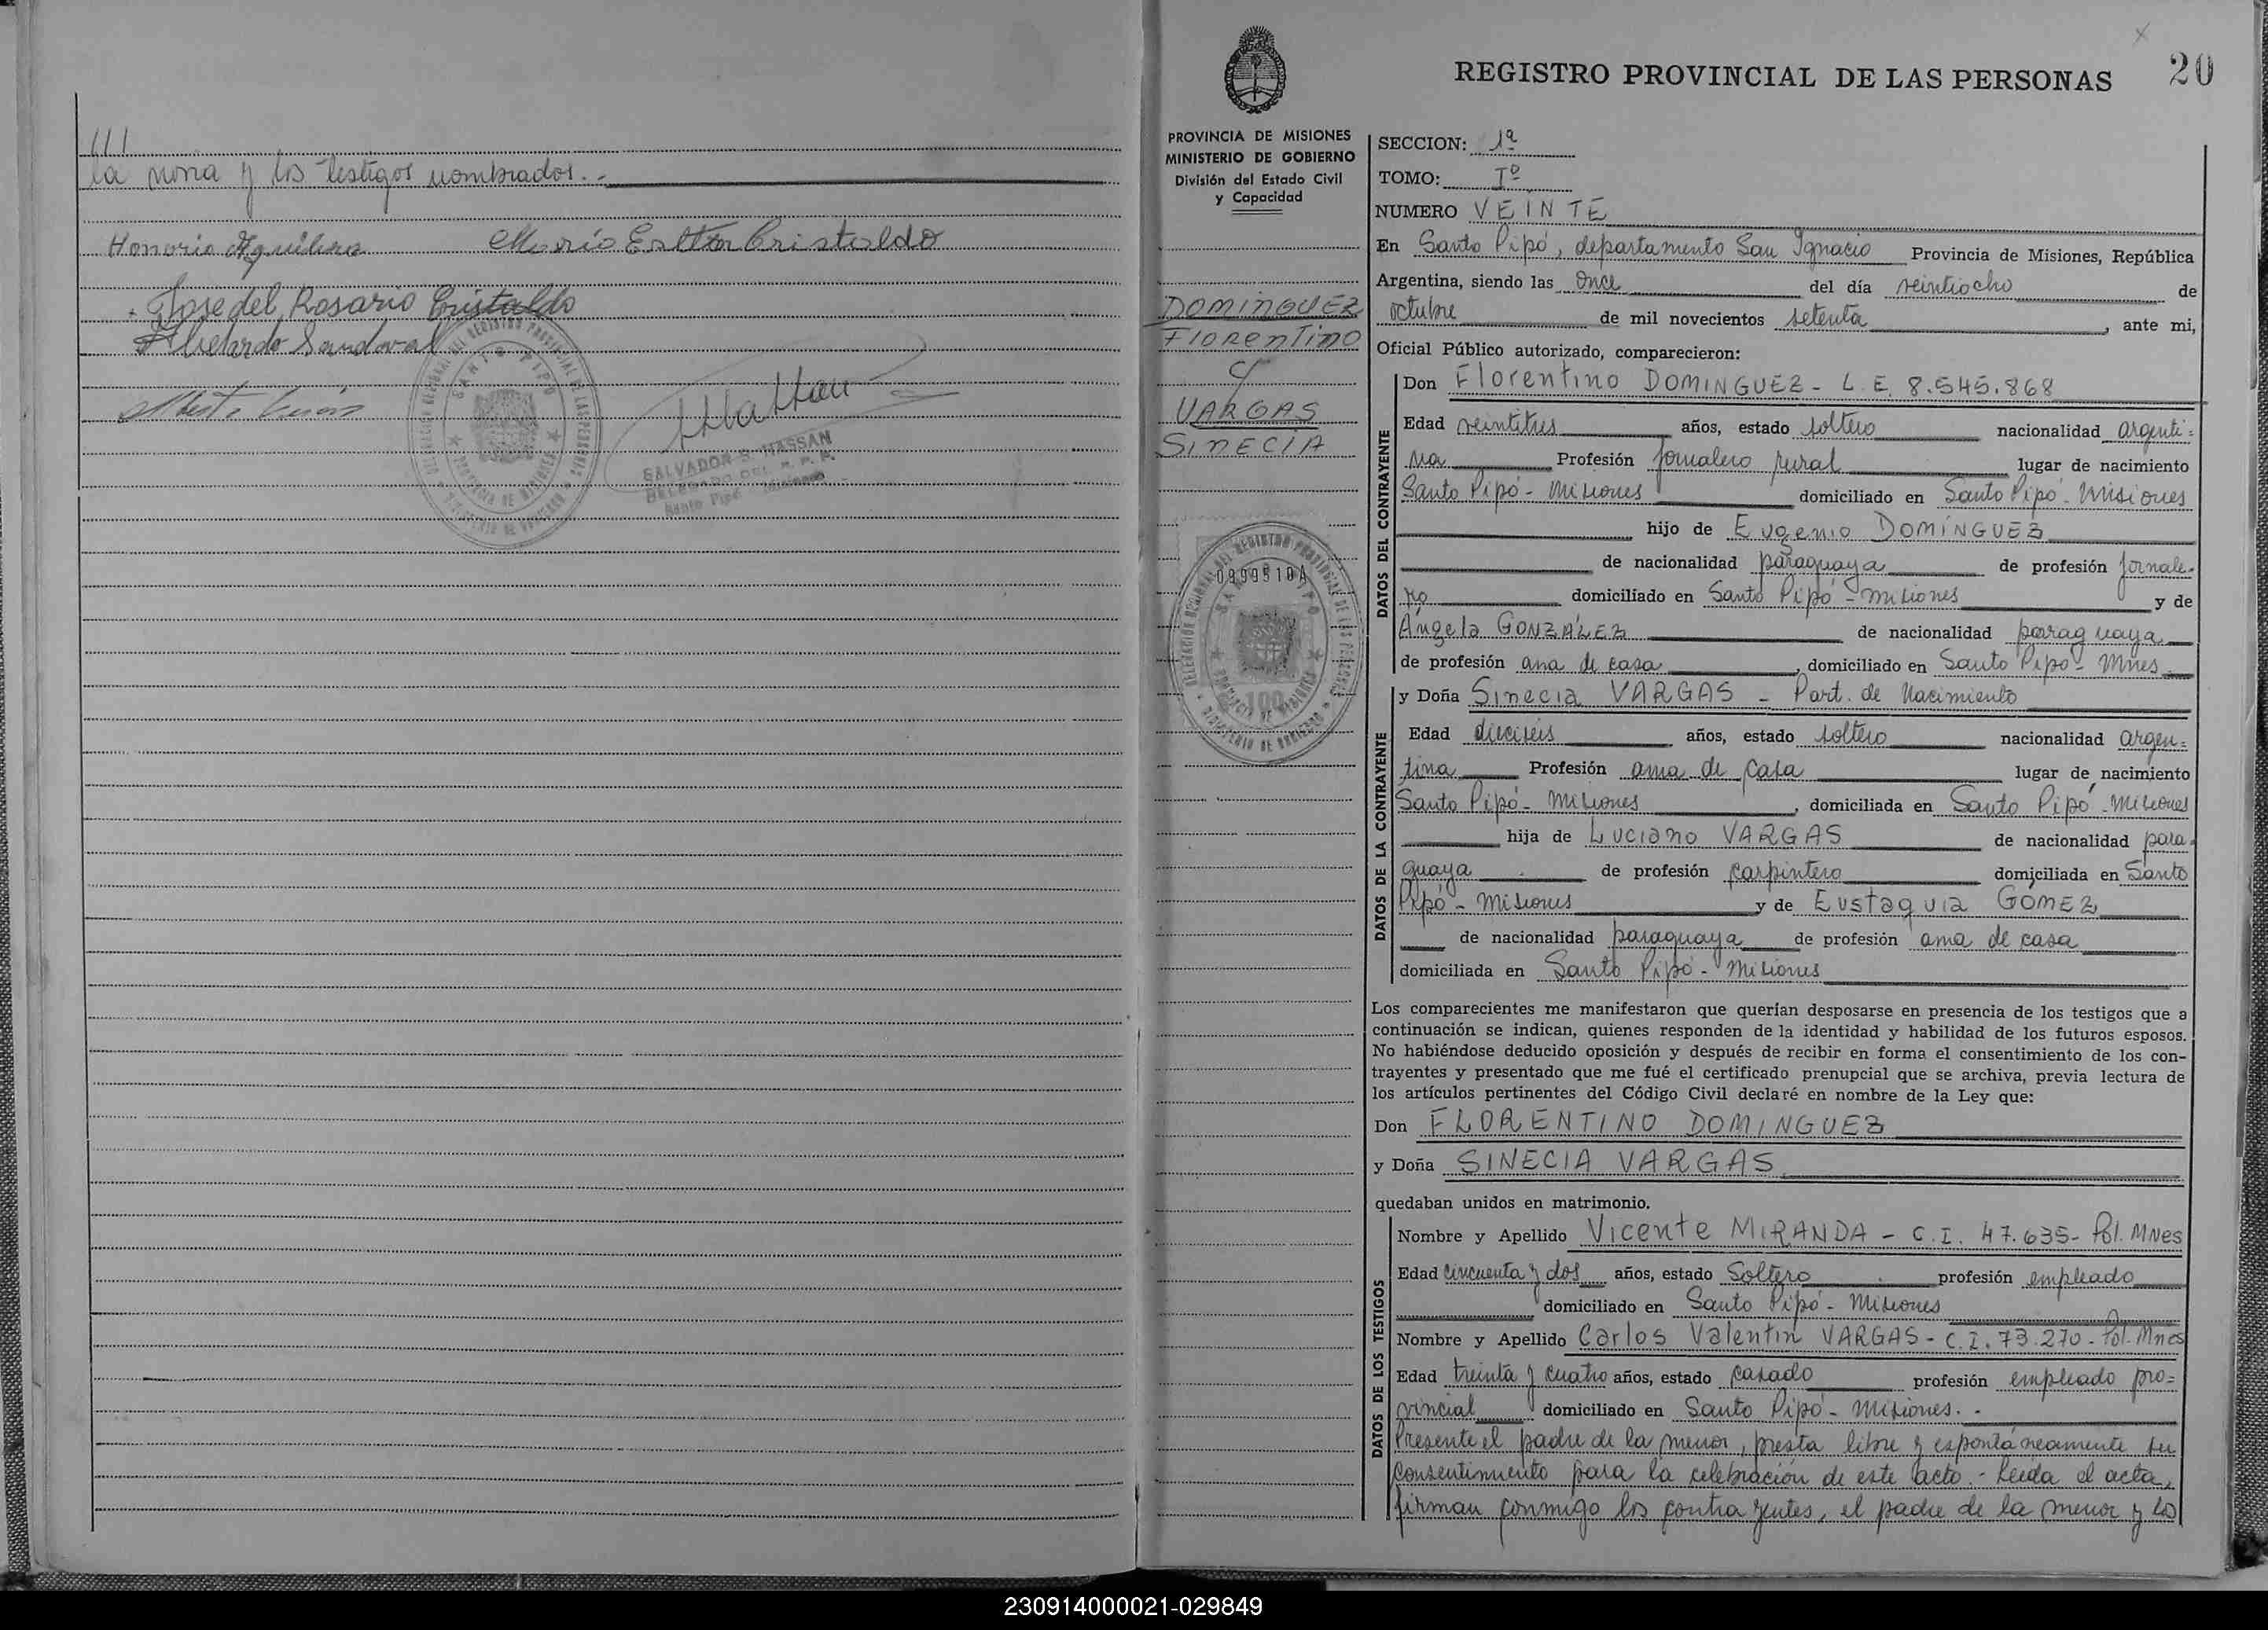 ///
la novia y los testigos nombrados. -
Honorio Aguilera María Esther Cristaldo
Jose del Rosario Cristaldo
Abelardo Sandoval
SANTO PIPO
SALVADOR S. HASSAN
DELEGADO DEL R. P. P.
Santo Pipó - Misiones
REGISTRO PROVINCIAL DE LAS PERSONAS 20
PROVINCIA DE MISIONES
MINISTERIO DE GOBIERNO
División del Estado Civil
y Capacidad
DOMINGUEZ
Florentino
y
VARGAS
SINECIA
0999510A
SANTO PIPO
100
SECCION: 1ª
TOMO: Iº
NUMERO VEINTE
En Santo Pipó, departamento San Ignacio Provincia de Misiones, República
Argentina, siendo las once del día veintiocho de
octubre de mil novecientos setenta, ante mi,
Oficial Público autorizado, comparecieron:
DATOS DEL CONTRAYENTE
Don Florentino DOMINGUEZ - L.E. 8.545.868
Edad veintitres años, estado soltero nacionalidad argenti=
na Profesión jornalero rural lugar de nacimiento
Santo Pipó - Misiones domiciliado en Santo Pipó - Misiones
hijo de Eugenio DOMÍNGUEZ
de nacionalidad paraguaya de profesión jornale-
ro domiciliado en Santo Pipó - Misiones y de
Ángela GONZÁLEZ de nacionalidad paraguaya
de profesión ama de casa, domiciliado en Santo Pipó - Mnes.
DATOS DE LA CONTRAYENTE
y Doña Sinecia VARGAS - Part. de Nacimiento
Edad dieciséis años, estado soltero nacionalidad argen=
tina Profesión ama de casa lugar de nacimiento
Santo Pipó - Misiones, domiciliada en Santo Pipó - Misiones
hija de Luciano VARGAS de nacionalidad para-
guaya de profesión carpintero domiciliada en Santo
Pipó - Misiones y de Eustaquia GÓMEZ
de nacionalidad paraguaya de profesión ama de casa
domiciliada en Santo Pipó - Misiones
Los comparecientes me manifestaron que querían desposarse en presencia de los testigos que a
continuación se indican, quienes responden de la identidad y habilidad de los futuros esposos.
No habiéndose deducido oposición y después de recibir en forma el consentimiento de los con-
trayentes y presentado que me fué el certificado prenupcial que se archiva, previa lectura de
los artículos pertinentes del Código Civil declaré en nombre de la Ley que:
Don FLORENTINO DOMINGUEZ
y Doña SINECIA VARGAS
quedaban unidos en matrimonio.
DATOS DE LOS TESTIGOS
Nombre y Apellido Vicente MIRANDA - C.I. 47.635- Pol. MNes
Edad cincuenta y dos años, estado Soltero profesión empleado
domiciliado en Santo Pipó - Misiones
Nombre y Apellido Carlos Valentín VARGAS - C.I. 73.270 - Pol. Mnes
Edad treinta y cuatro años, estado casado profesión empleado pro=
vincial domiciliado en Santo Pipó - Misiones. -
Presente el padre de la menor, presta libre y espontáneamente su
consentimiento para la celebración de este acto. - Leída el acta,
firman conmigo los contrayentes, el padre de la menor y los
230914000021-029849